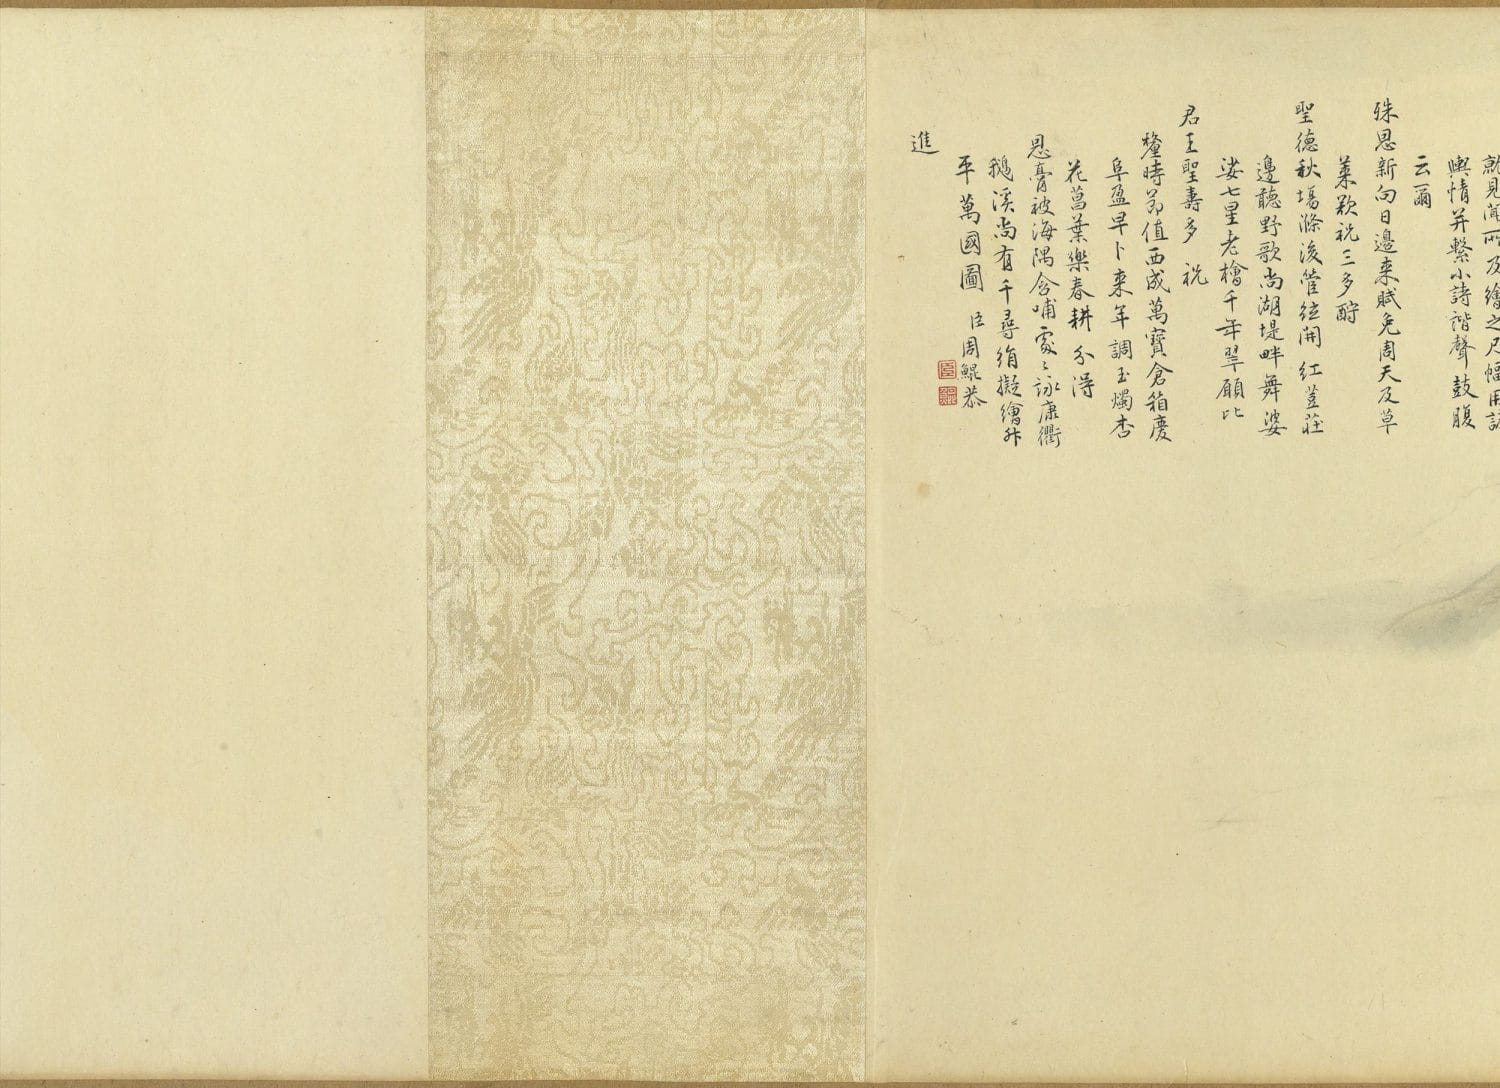 就見聞所及繪之乃幅用誌
輿情并繫小詩諧聲鼓腹
云爾
殊恩新向日邊來賦免周天及草
萊歡祝三多酹
聖德秋場滌後管絃開 紅荳莊
邊聽野歌尚湖堤畔舞婆
娑七星老檜千年翠願比
君王聖壽多 祝
釐時節值西成萬寶倉箱慶
阜盈早卜來年調玉燭杏
花菖葉樂春耕 分得
恩膏被海隅含哺處々詠康衢
鵝溪尚有千尋絹擬繪昇
平萬國圖 臣周鯤恭
進
臣
鯤